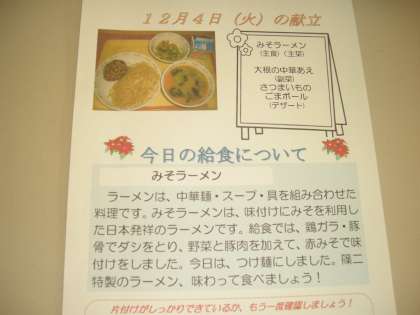 12月4日（火）の献立
みそラーメン
（主食）（主菜）
大根の中華あえ
（副菜）
さつまいもの
ごまボール
（デザート）
今日の給食について
みそラーメン
ラーメンは、中華麺・スープ・具を組み合わせた
料理です。みそラーメンは、味付けにみそを利用し
た日本発祥のラーメンです。給食では、鶏ガラ・豚
骨でダシをとり、野菜と豚肉を加えて、赤みそで味
付けをしました。今日は、つけ麺にしました。篠二
特製のラーメン、味わって食べましょう！
片付けがしっかりできているか、もう一度確認しましょう！